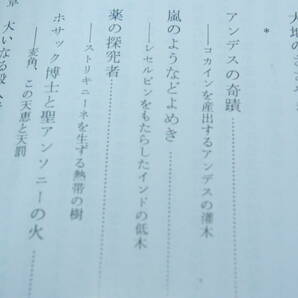 大地の
*
アンデスの奇蹟
——コカインを産出するアンデスの灌木
嵐のようなどよめき
——レセルピンをもたらしたインドの低木
薬の探究者
——ストリキニーネを生ずる熱帯の樹
ホサック博士と聖アンソニーの火
——麦角、この天恵と天罰
章 大いなる